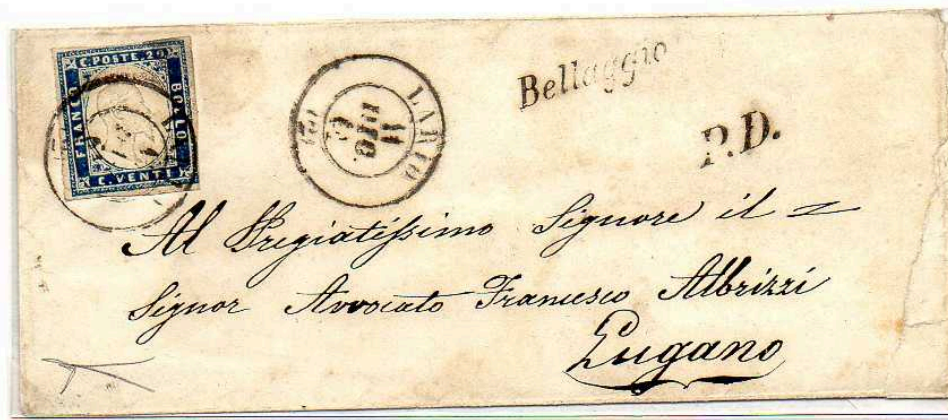 C. POSTE. 20
FRANCO
BOLLO
C. VENTI
LARIO
11
(2)
Bellaggio
P.D.
Al Pregiatissimo Signore il
Signor Avvocato Francesco Albrizzi
Lugano